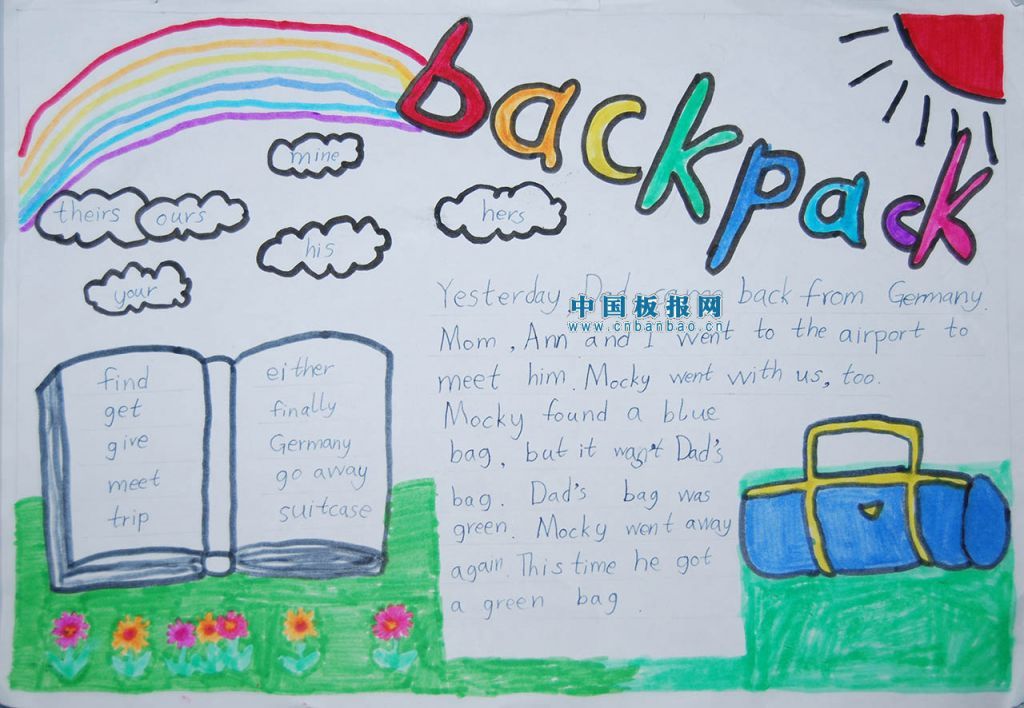 backpack
mine
theirs
ours
hers
his
your
find
get
give
meet
trip
either
finally
Germany
go away
suitcase
Yesterday, Dad back from Germany.
中国板报网
www.cnbanbao.cn
Mom, Ann and I went to the airport to
meet him. Mocky went with us, too.
Mocky found a blue
bag, but it wasn't Dad's
bag. Dad's bag was
green. Mocky went away
again. This time he got
a green bag.